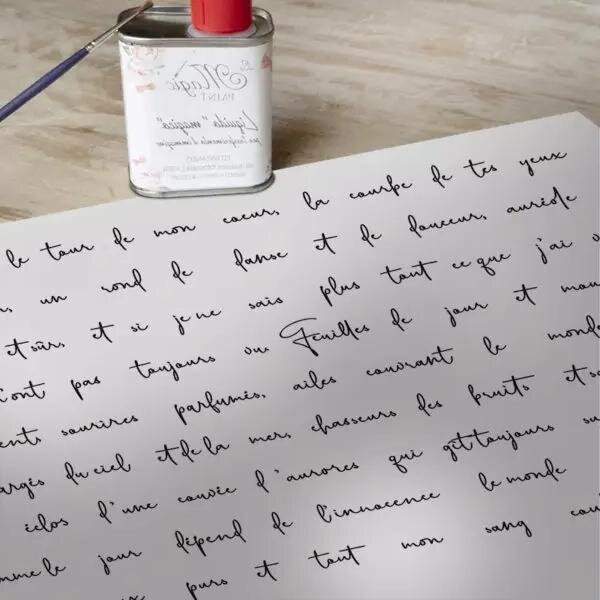 Magic
PAINT
Liquido "magico"
per trasferimento d'immagine
le tour de mon coeur, la courbe de tes yeux
, un rond de danse et de douceur, auréole
et sûr, et si je ne sais plus tout ce que j'ai v
'ont pas toujours vu. Feuilles de jour et mou
ents sourires parfumés, ailes couvrant le monde
argés du ciel et de la mer, chasseurs des bruits et so
éclos d'une couvée d'aurores qui gît toujours su
mme le jour dépend de l'innocence le monde
x purs et tout mon sang cou